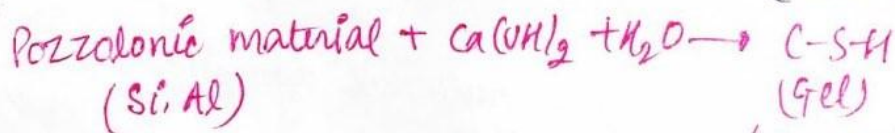 Pozzolonic material + Ca(OH)2 + H2O → C-S-H
(Si, Al)
(Gel)